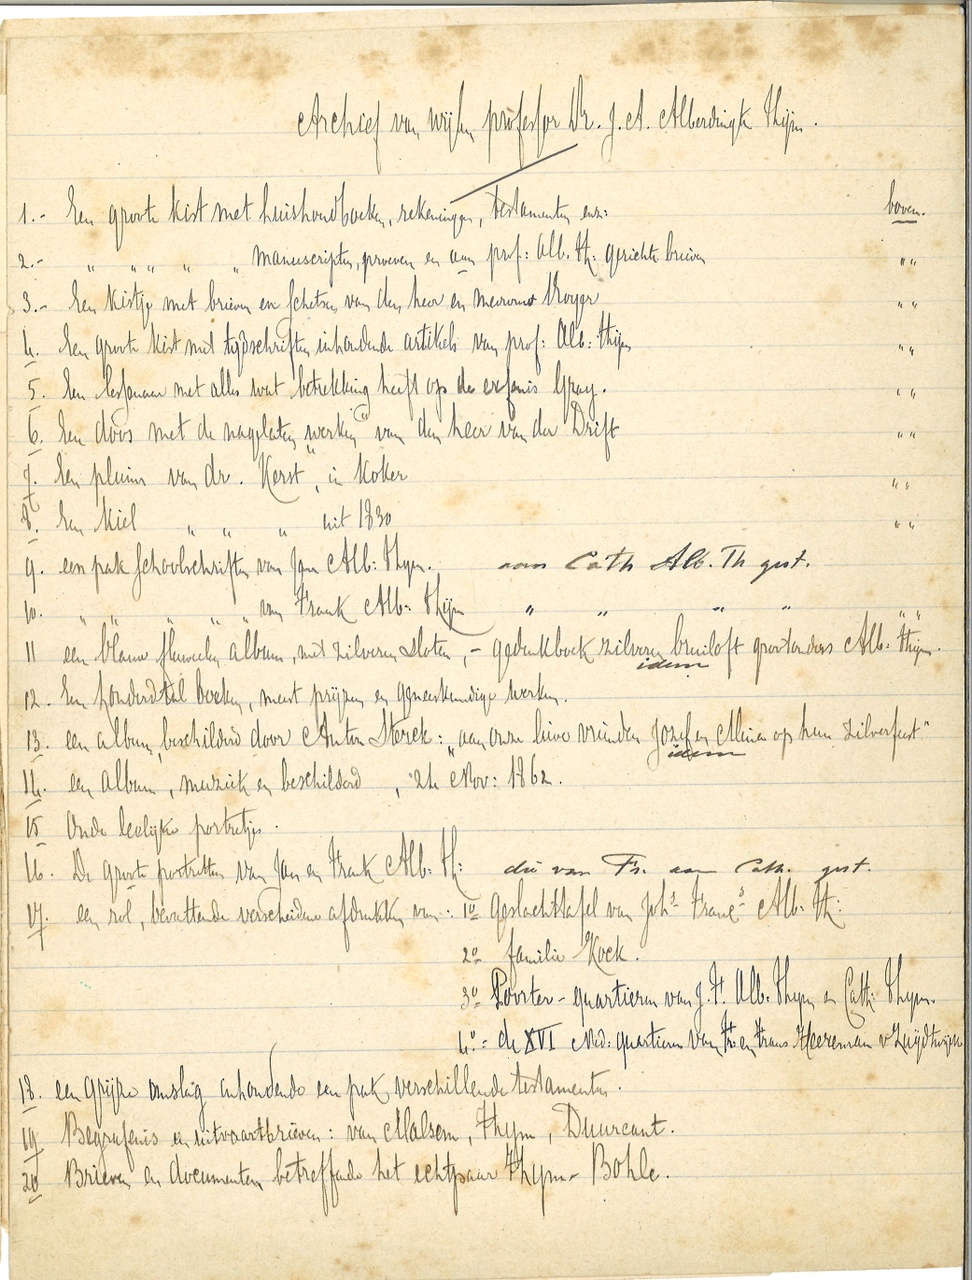 Archief van wijlen professor Dr. J. A. Alberdingk Thijm.
1.- Een groote kist met huishoudboeken, rekeningen, testamenten enz: boven.
2.- " " " " " manuscripten, proeven en aan prof: Alb. Th: gerichte brieven " "
3.- Een kistje met brieven en schetsen van den heer en mevrouw " "
4. Een groote kist met tijdschriften inhoudende artikels van prof: Alb: Thijm " "
5. Een lessenaar met alles wat betrekking heeft op de erfenis Gray. " "
6. Een doos met de nagelaten werken van den heer van der Drift " "
7. Een pluim van dr. Kerst, in koker " "
8. Een kiel " " " uit 1830 " "
9. een pak schoolschriften van Jan Alb: Thijm. aan Cath Alb. Th gest.
10. " " " " " van Frank Alb: Thijm " " " " " "
11 een blauw fluweelen album, met zilveren sloten, - gedenkboek zilveren bruiloft grootouders Alb: Thijm.
idem
12. Een honderdtal boeken, meest prijzen en geneeskundige werken.
13. een album, beschilderd door Anton Sterck: "aan onze lieve vrienden Jozef en Mina op hun zilverfeest"
idem
14. een album, muziek en beschilderd, 24 Nov: 1862.
15 Oude leelijke portretjes.
16. De groote portretten van Jan en Frank Alb: Th: die van Fr. aan Cath. gest.
17. een rol, bevattende verscheidene afdrukken van: 1º Geslachttafel van Johs Francs Alb: Th:
2º familie Kock.
3º Poorter-quartieren van J. F. Alb: Thijm en Cath: Thijm.
4º.- de XVI Ned: quartieren van Fr: en Frans Heereman v Zuydtwijck
18. een grijze omslag inhoudende een pak verschillende testamenten.
19 Begrafenis en uitvaartbrieven: van Malsem, Thijm, Duurcant.
20 Brieven en documenten betreffende het echtpaar Thijm-Bohle.